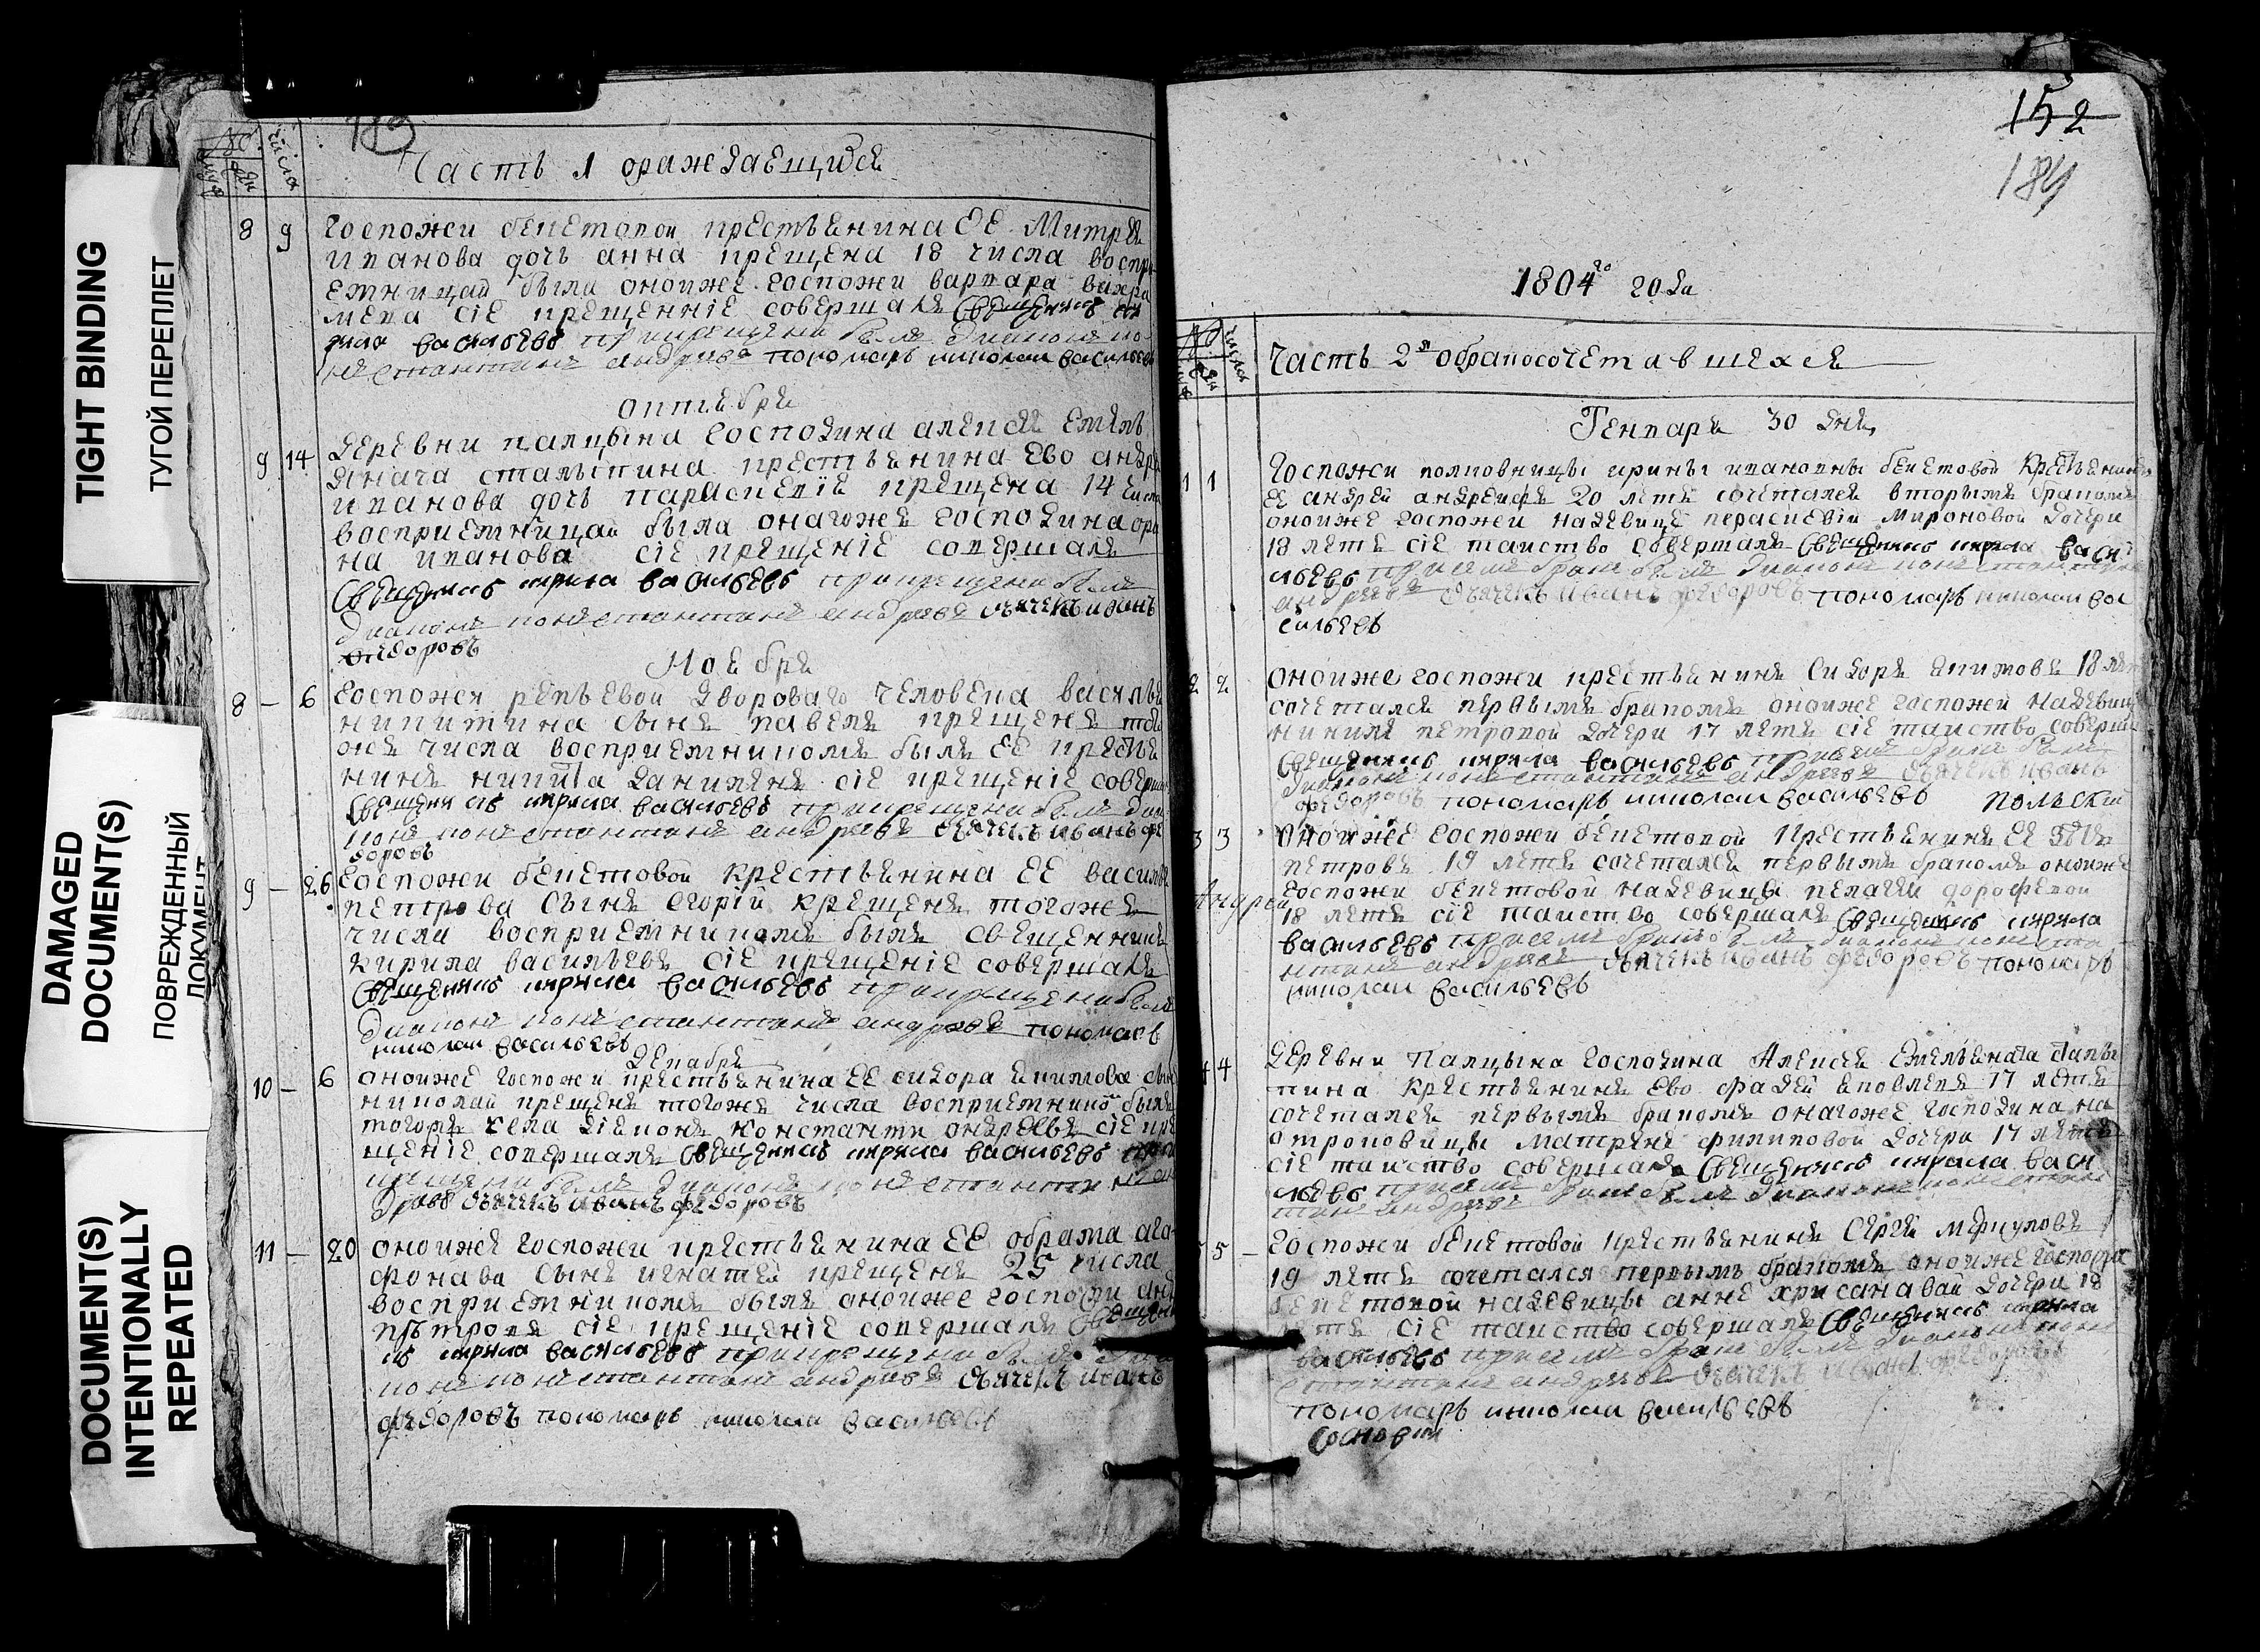 TIGHT BINDING
ТУГОЙ ПЕРЕПЛЕТ
DAMAGED
DOCUMENT(S)
ПОВРЕЖДЕННЫЙ
ДОКУМЕНТ
DOCUMENT(S)
INTENTIONALLY
REPEATED
183
числа
Часть 1 ораждаещихся
8 9 госпожи бекетовой крестьенина ее Митрея
иванова дочь анна крещена 18 числа воспри
емницай была оноиже госпожи варвара
сіе крещенніе совершалъ Священникъ
васильевъ при крещени былъ диаконъ ко
нстантинъ андреевъ пономарь николаи васильевъ
октебря
9 14 деревни палцына господина алексея емель
янача сталыпина крестьенина ево андре
иванова дочь параскевіе крещена 14 числа
восприемницай была онагоже господина
на иванова сіе крещеніе совершалъ
Священникъ кирила васильевъ при крещени былъ
диаконъ константинъ андреевъ дьячекъ иванъ
федоровъ
Ноебря
8 — 6 госпожи репьевой двороваго человека василья
никитина сынъ павелъ крещенъ того
же числа восприемникомъ былъ ее крестье
нинъ никита данилинъ сіе крещеніе соверша
Священникъ кирила васильевъ при крещени былъ диа
конъ константинъ андреевъ дьячекъ иванъ фе
доровъ
9 — 26 госпожи бекетовой крестьенина ее василья
петрова сынъ егорій крещенъ тогоже
числа восприемникомъ былъ священникъ
кирила васильевъ сіе крещеніе совершалъ
Священникъ кирила васильевъ при крещени былъ
диаконъ константинъ андреевъ пономарь
николаи васильевъ
декабре
10 — 6 оноиже госпожи крестьенина ее сидора екимова сынъ
николай крещенъ тогоже числа восприемнико былъ
тогоже села діеконъ константи андреевъ сіе кре
щеніе совершалъ Священникъ кирила васильевъ при
крещени былъ диаконъ константинъ ан
древъ дьячекъ иванъ федоровъ
11 — 20 оноиже госпожи крестьенина ее обрама ага
фонава сынъ игнатей крещенъ 25 числа
восприемникомъ былъ оноиже госпожи
петровъ сіе крещеніе совершалъ Священни
къ кирила васильевъ при крещени былъ диа
конъ константинъ андреевъ дьячекъ иванъ
федоровъ пономарь николаи васильевъ
152
184
1804го года
числа
Часть 2я обракосочетавшехся
Генваря 30 дня
1 1 Госпожи полковницы ирины ивановны бекетовой крестьенинъ
ее андрей андреевъ 20 летъ сочетался вторымъ бракомъ
оноиже госпожи надевице пераскевіи Мироновой дочери
18 летъ сіе таиство совершалъ Священникъ кирила васи
льевъ при семъ браке былъ диаконъ константинъ
андреевъ дьячекъ иванъ федоровъ пономарь николаи ва
сильевъ
2 2 оноиже госпожи крестьенинъ Сидоръ екимовъ 18 летъ
сочетался первымъ бракомъ оноиже госпожи надевице
петровой дочери 17 летъ сіе таиство соверша
Священникъ кирила васильевъ при семъ браке былъ
диаконъ константинъ андреевъ дьячекъ иванъ
федоровъ пономарь николаи васильевъ польскій
3 3 оноиже госпожи бекетовой крестьенинъ ее
петровъ 19 летъ сочетался первымъ бракомъ оноиже
Андрей госпожи бекетовой надевицы пелагеи дорофевой
18 летъ сіе таиство совершалъ Священникъ кирила
васильевъ при семъ браке былъ диаконъ конста
нтинъ андреевъ дьячекъ иванъ федоровъ пономарь
николаи васильевъ
4 4 деревни Палцына господина Алексея Емельенача Сталы
пина крестьенинъ ево фадей ековлевъ 17 летъ
сочетался первымъ бракомъ онагоже господина на
отроковицы матрене филиповой дочери 17 летъ
сіе таиство совершалъ Священникъ кирила васи
левъ при семъ браке былъ диаконъ констан
тинъ андреевъ
5 5 — госпожи бекетовой крестьенинъ Сергей меркуловъ
19 летъ сочетался первымъ бракомъ оноиже госпожи
бекетовой надевицы анне хрисанавай дочери 18
летъ сіе таиство совершалъ Священникъ кирила
васильевъ при семъ браке былъ диаконъ кон
стантинъ андреевъ дьячекъ иванъ федоровъ
пономарь николаи васильевъ